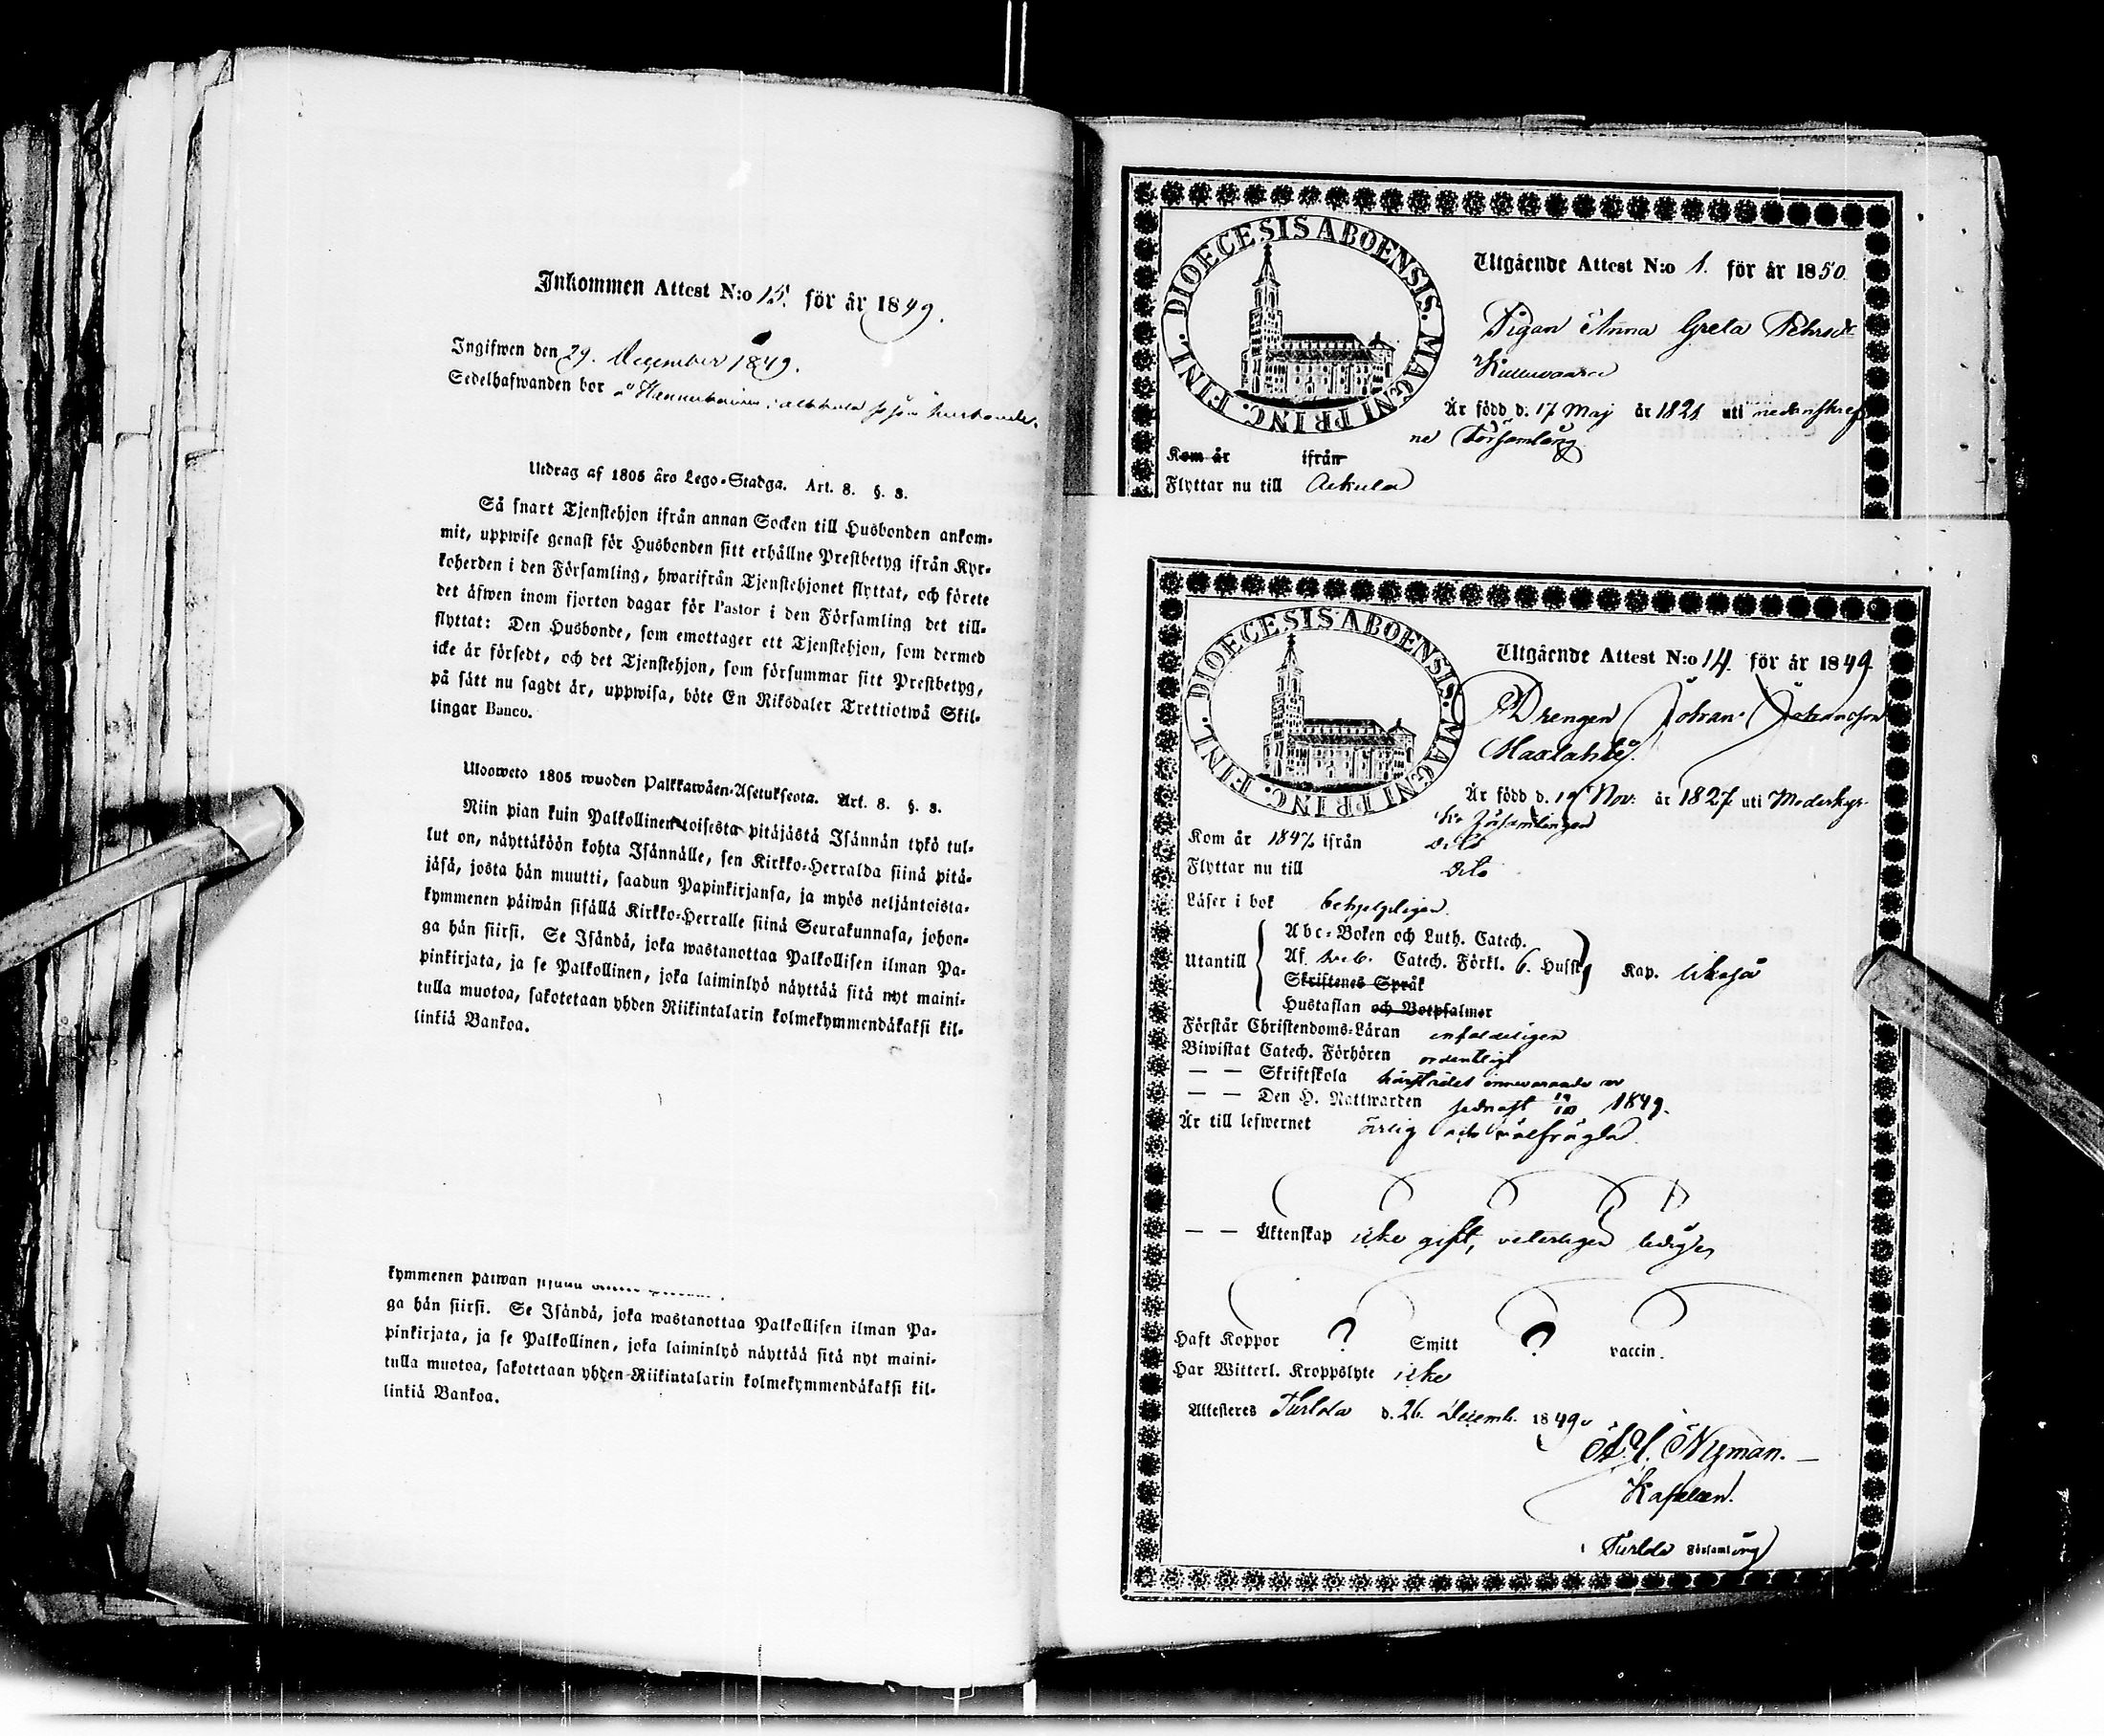 Inkommen Attest N:o 15. för år 1849.
Ingifwen den 29. December 1849.
Sedelhafwanden bor å
Utdrag af 1805 års Lego-Stadga. Art. 8. §. 3.
Så snart Tjenstehjon ifrån annan Socken till Husbonden ankom-
mit, uppwise genast för Husbonden sitt erhållne Prestbetyg ifrån Kyr-
koherden i den Församling, hwarifrån Tjenstehjonet flyttat, och förete
det äfwen inom fjorton dagar för Pastor i den Församling det till-
flyttat: Den Husbonde, som emottager ett Tjenstehjon, som dermed
icke är försedt, och det Tjenstehjon, som försummar sitt Prestbetyg,
på sätt nu sagdt är, uppwisa, böte En Riksdaler Trettiotwå Skil-
lingar Banco.
Uloosweto 1805 wuoden Palkkawäen-Asetuksesta. Art. 8. §. 3.
Niin pian kuin Palkollinen toisesta pitäjästä Isännän tykö tul-
lut on, näyttäköön kohta Isännälle, sen Kirkko-Herralda siinä pitä-
jäsä, josta hän muutti, saadun Papinkirjansa, ja myös neljäntoista-
kymmenen päiwän sisällä Kirkko-Herralle siinä Seurakunnasa, johon-
ga hän siirsi. Se Isändä, joka wastanottaa Palkollisen ilman Pa-
pinkirjata, ja se Palkollinen, joka laiminlyö näyttää sitä nyt maini-
tulla muotoa, sakotetaan yhden Riikintalarin kolmekymmendäkaksi kil-
linkiä Bankoa.
kymmenen päiwän sisällä
ga hän siirsi. Se Isändä, joka wastanottaa Palkollisen ilman Pa-
pinkirjata, ja se Palkollinen, joka laiminlyö näyttää sitä nyt maini-
tulla muotoa, sakotetaan yhden Riikintalarin kolmekymmendäkaksi kil-
linkiä Bankoa.
DIOECESIS ABOENSIS. MAGNI PRINC. FINL.
Utgående Attest N:o 1. för år 1850.
Pigan Anna Greta
Är född d. 17 Maj år 1821 uti nedanskref
ne Församling
Kom år ifrån
Flyttar nu till
DIOECESIS ABOENSIS. MAGNI PRINC. FINL.
Utgående Attest N:o 14. för år 1849
Drengen Johan Johansson
Är född d. 19 Nov: år 1827 uti Moderkyr-
ko församlingen
Kom år 1847 ifrån
Flyttar nu till
Läser i bok behjelpligen.
Utantill
Abc-Boken och Luth. Catech.
Af Catech. Förkl. 6. Hufst Kap. likaså
Skriftenes Språk
Hustaflan och Botpsalmer
Förstår Christendoms-Läran enfaldeligen
Biwistat Catech. Förhören ordentligt
— — Skriftskola
— — Den H. Nattwarden sednast 1849.
Är till lefwernet ärlig och välfrägdad.
— — Äktenskap icke gift, veterligen ledig
Haft Koppor ? Smitt ? vaccin.
Har Witterl. Kroppslyte icke
Attesteres d. 26. Decemb. 1849.
Nyman.
Kapellan.
i Församling